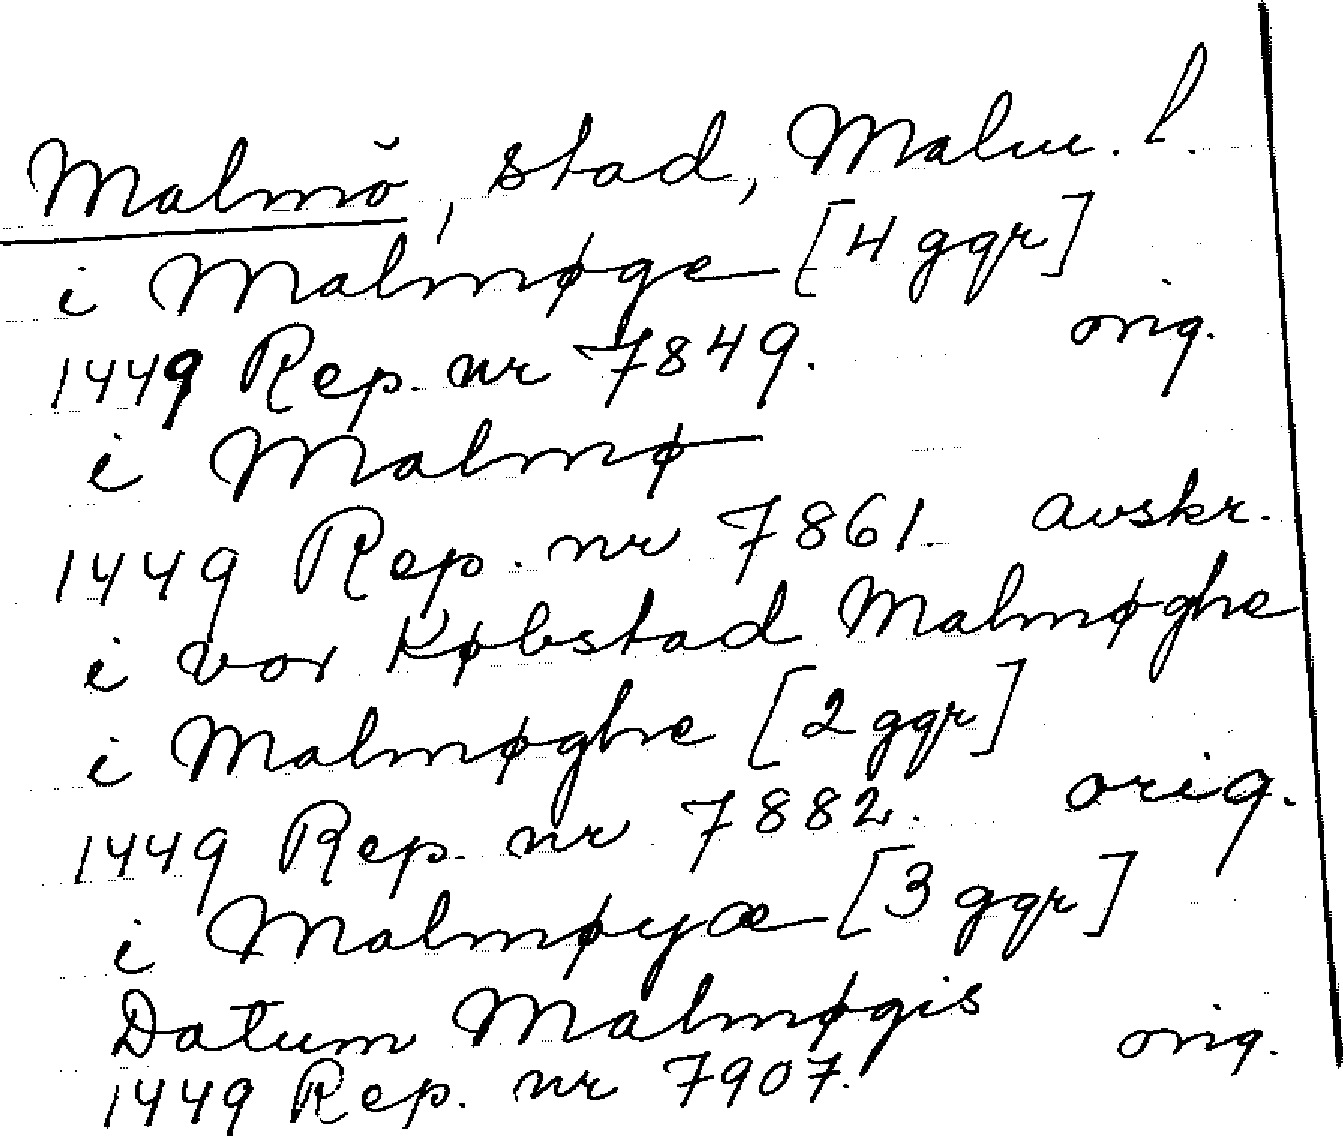 Malmö, stad, Malm. l.
i Malmøge [4 ggr]
1449 Rep. nr 7849. orig.
i Malmø
1449 Rep. nr 7861. avskr.
i vor Købstad Malmøghe
i Malmøghe [2 ggr]
1449 Rep. nr 7882. orig.
i Malmøyæ [3 ggr]
Datum Malmøgis
1449 Rep. nr 7907. orig.